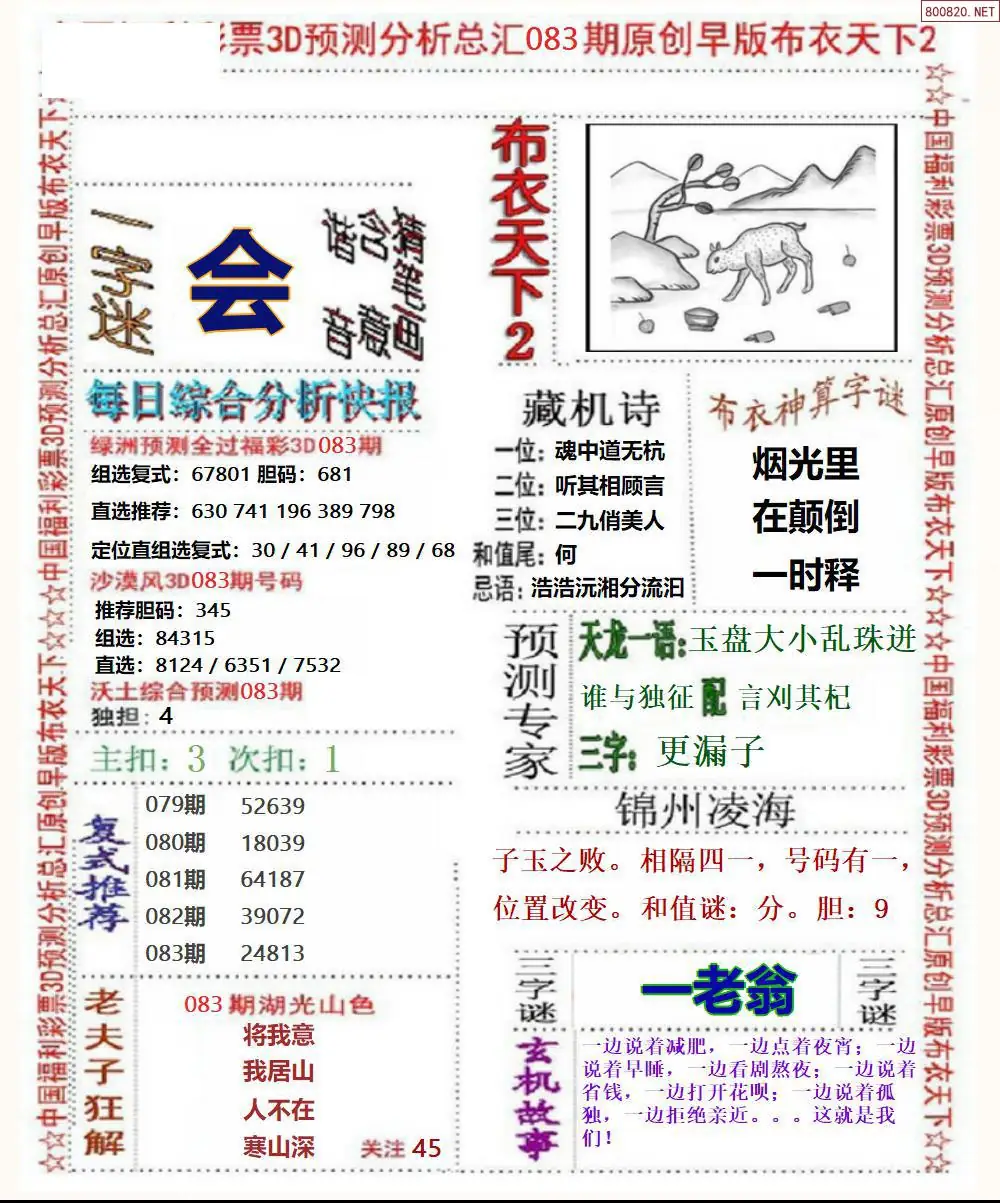 800820.NET
彩票3D预测分析总汇083期原创早版布衣天下2
☆☆中国福利彩票3D预测分析总汇原创早版布衣天下☆☆☆☆中国福利彩票3D预测分析总汇原创早版布衣天下☆☆
一字迷
会
拆笔画
会意
猜
每日综合分析快报
绿洲预测全过福彩3D083期
组选复式：67801 胆码：681
直选推荐：630 741 196 389 798
定位直组选复式：30 / 41 / 96 / 89 / 68
沙漠风3D083期号码
推荐胆码：345
组选：84315
直选：8124 / 6351 / 7532
沃土综合预测083期
独担：4
主扣：3 次扣：1
复式推荐
079期 52639
080期 18039
081期 64187
082期 39072
083期 24813
老夫子狂解
083期湖光山色
将我意
我居山
人不在
寒山深 关注 45
布衣天下2
藏机诗
一位：魂中道无杭
二位：听其相顾言
三位：二九俏美人
和值尾：何
忌语：浩浩沅湘分流汨
布衣神算字谜
烟光里
在颠倒
一时释
预测专家
天龙一语:玉盘大小乱珠迸
谁与独征 配 言刈其杞
三字：更漏子
锦州凌海
子玉之败。相隔四一，号码有一，
位置改变。和值谜：分。胆：9
三字谜
一老翁
三字谜
玄机故事
一边说着减肥，一边点着夜宵；一边
说着早睡，一边看剧熬夜；一边说着
省钱，一边打开花呗；一边说着孤
独，一边拒绝亲近。。。这就是我
们！
☆☆中国福利彩票3D预测分析总汇原创早版布衣天下☆☆☆☆中国福利彩票3D预测分析总汇原创早版布衣天下☆☆